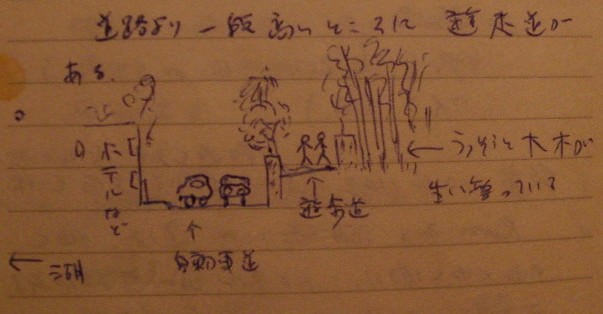 道路より一段高いところに 遊歩道が
ある。
ホテルなど
うっそうと木木が
生い繁っている
遊歩道
自動車道
← 湖